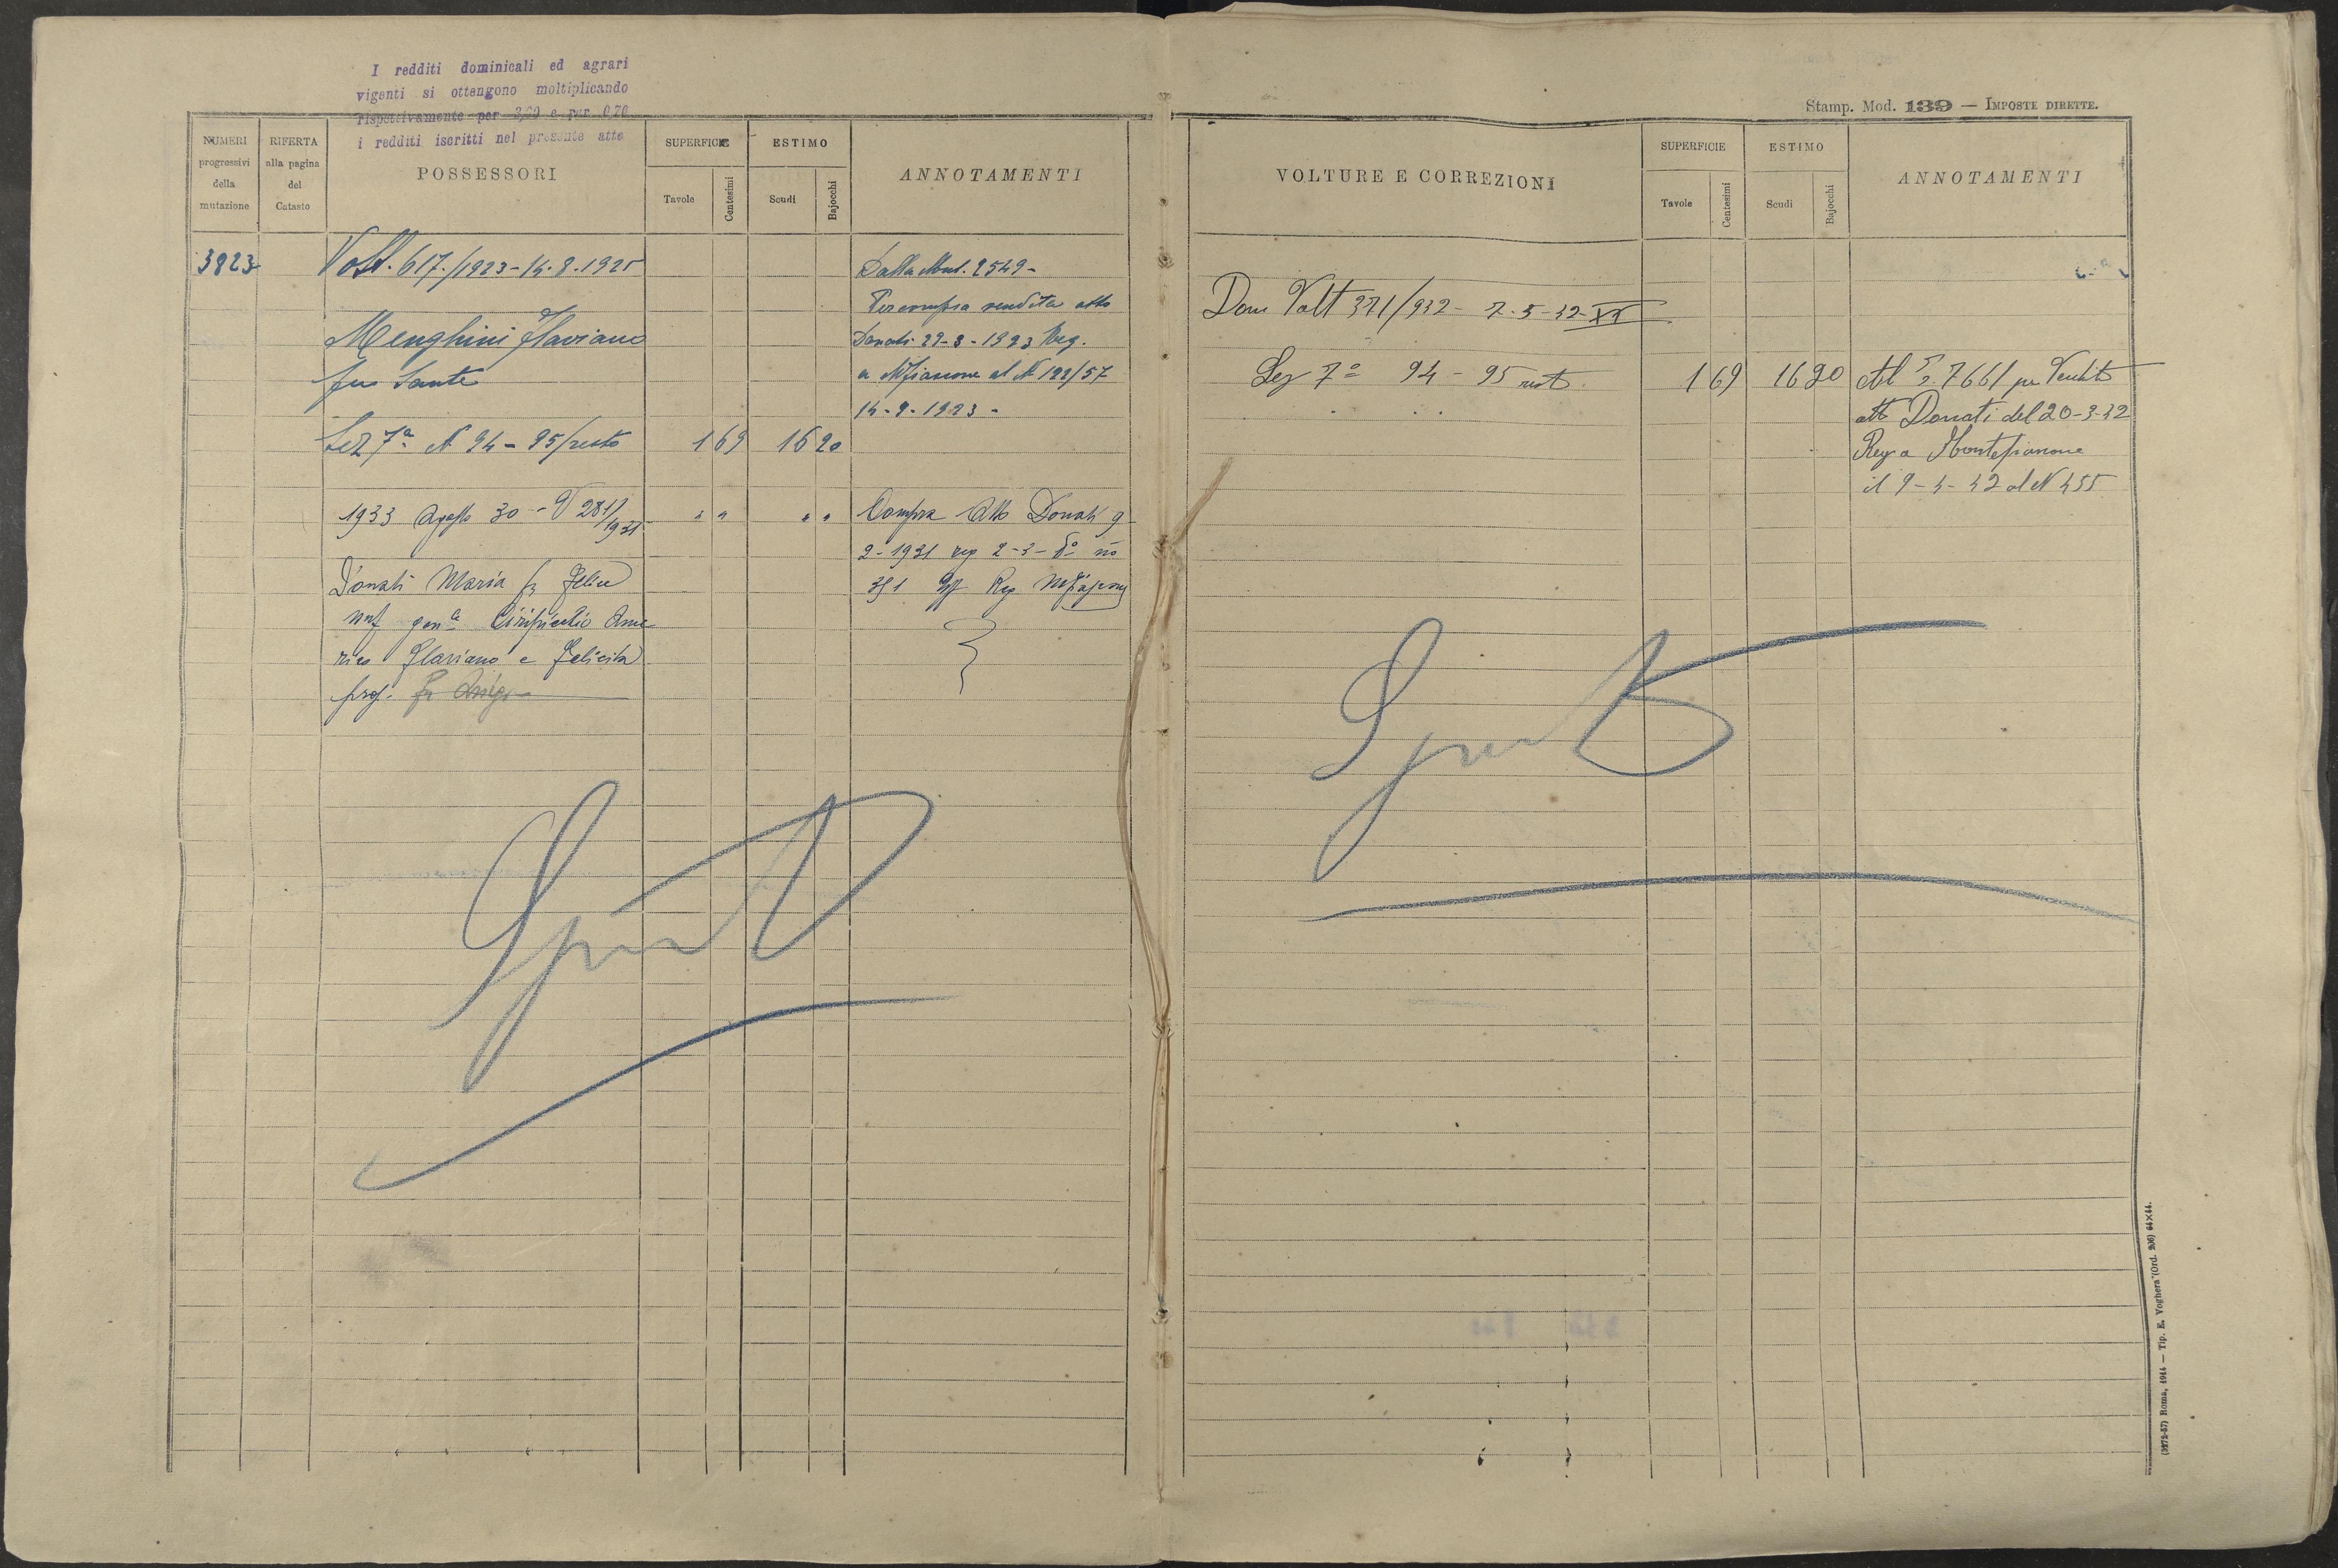 I redditi dominicali ed agrari
vigenti si ottengono moltiplicando
rispettivamente per e per 0,70
i redditi iscritti nel presente atto
NUMERI
progressivi
della
mutazione
RIFERTA
alla pagina
del
Catasto
POSSESSORI
SUPERFICIE
Tavole
Centesimi
ESTIMO
Scudi
Bajocchi
ANNOTAMENTI
3823
Volt. 617/1923 - 14.8.1925
Dalla Mut. 2549 -
Per compra vendita atto
Menghini Flaviano
Donati 29-8-1923 Reg.
fu Sante
a M.fiascone al N. 122/57
14-9-1923 -
Sez 7ª N 94 - 95/resto
1 69
16 20
1933 Agosto 30 - V 281/1931
" "
" "
Compra Atto Donati 9
2-1931 reg 2-3-
Donati Maria fu Felice
351 Reg Mfiascone
Flaviano e Felicita
Stamp. Mod. 139 — IMPOSTE DIRETTE.
VOLTURE E CORREZIONI
SUPERFICIE
Tavole
Centesimi
ESTIMO
Scudi
Bajocchi
ANNOTAMENTI
Volt 371/932 -
Sez 7ª 94 - 95 rest.
1 69
16 20
7661 per Vendita
atto Donati del 20-3-32
Reg a Montefiascone
il 9-4-32 al N 455
Spento
Spento
(3272-57) Roma, 1914 — Tip. E. Voghera (Ord. 206) 64×44.